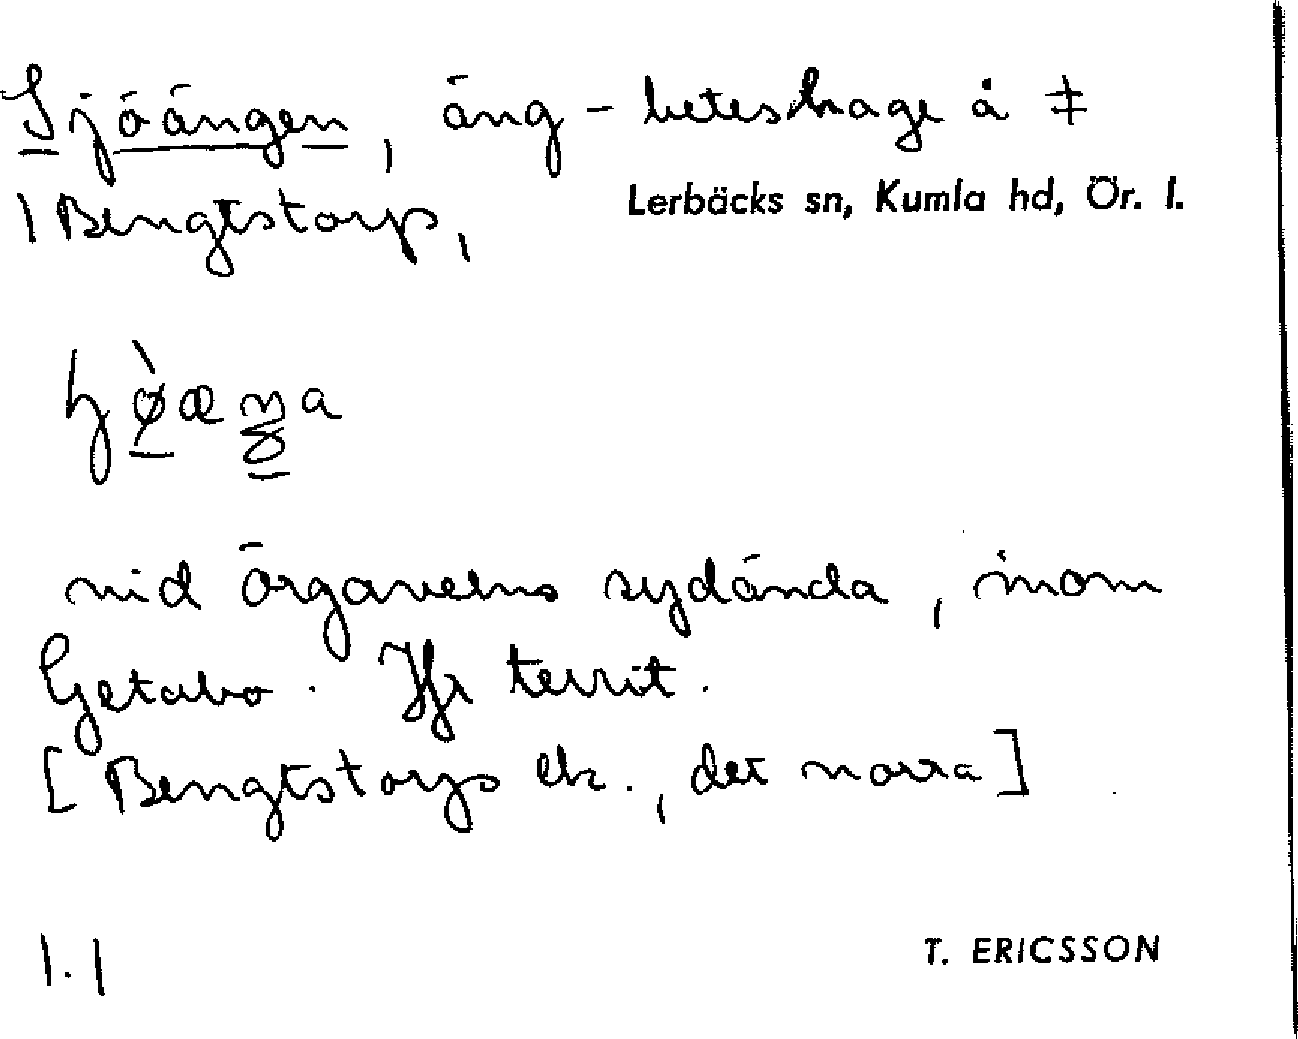 Sjöängen, äng – beteshage å ‡
1 Bengtstorp,
Lerbäcks sn, Kumla hd, Ör. l.
vid Örgavelns sydända, inom
Getabo. Jfr territ.
[Bengtstorps ek., det norra]
1.1
T. ERICSSON